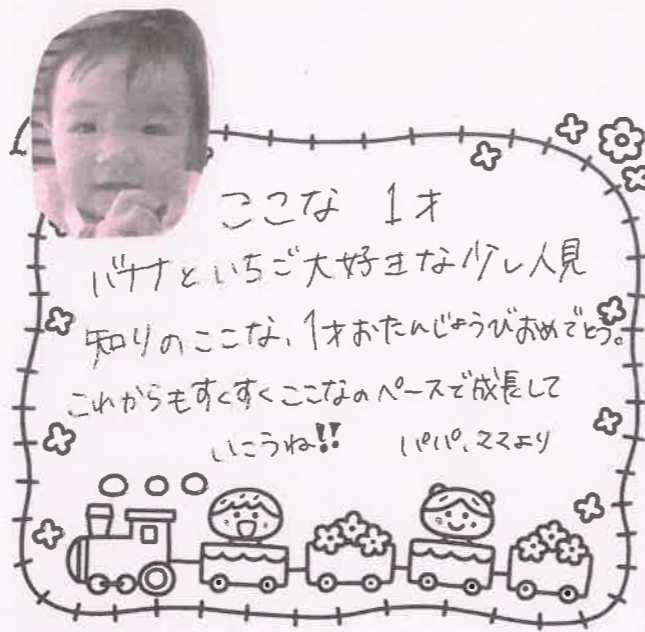 ここな 1才
バナナといちご大好きな少し人見
知りのここな、1才おたんじょうびおめでとう。
これからもすくすくここなのペースで成長して
いこうね!! パパ、ママより